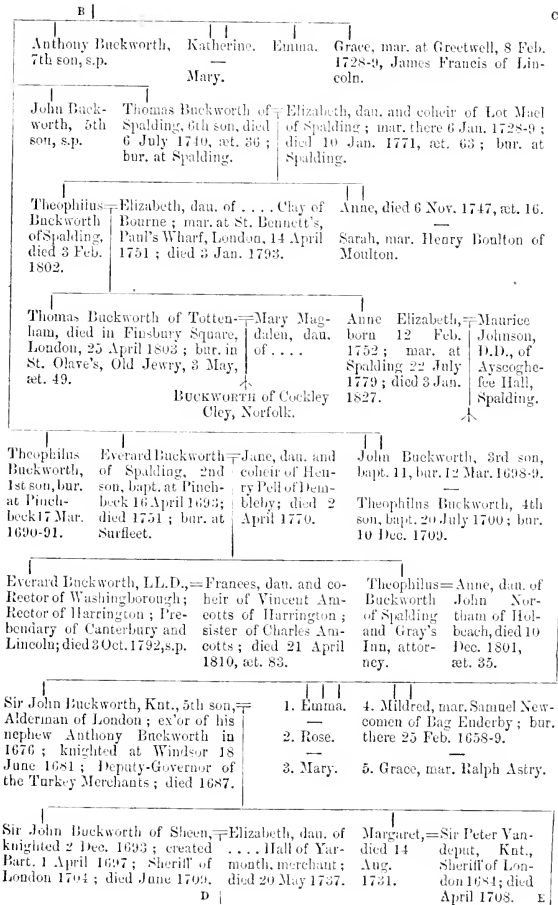 B C
Anthony Buckworth,
7th son, s.p.
Katherine.
—
Mary.
Emma.
Grace, mar. at Greetwell, 8 Feb.
1728-9, James Francis of Lin-
coln.
John Buck-
worth, 5th
son, s.p.
Thomas Buckworth of
Spalding, 6th son, died
6 July 1740, æt. 36 ;
bur. at Spalding.
Elizabeth, dau. and coheir of Lot Mael
of Spalding ; mar. there 6 Jan. 1728-9 ;
died 10 Jan. 1771, æt. 63 ; bur. at
Spalding.
Theophilus
Buckworth
of Spalding,
died 3 Feb.
1802.
Elizabeth, dau. of . . . . Clay of
Bourne ; mar. at St. Bennett's,
Paul's Wharf, London, 14 April
1751 ; died 3 Jan. 1793.
Anne, died 6 Nov. 1747, æt. 16.
—
Sarah, mar. Henry Boulton of
Moulton.
Thomas Buckworth of Totten-
ham, died in Finsbury Square,
London, 25 April 1803 ; bur. in
St. Olave's, Old Jewry, 3 May,
æt. 49.
Mary Mag-
dalen, dau.
of . . . .
BUCKWORTH of Cockley
Cley, Norfolk.
Anne Elizabeth,
born 12 Feb.
1752 ; mar. at
Spalding 22 July
1779 ; died 3 Jan.
1827.
Maurice
Johnson,
D.D., of
Ayscoghe-
fee Hall,
Spalding.
Theophilus
Buckworth,
1st son, bur.
at Pinch-
beck 17 Mar.
1690-91.
Everard Buckworth
of Spalding, 2nd
son, bapt. at Pinch-
beck 16 April 1693;
died 1751 ; bur. at
Surfleet.
Jane, dau. and
coheir of Hen-
ry Pell of Dem-
bleby; died 2
April 1770.
John Buckworth, 3rd son,
bapt. 11, bur. 12 Mar. 1698-9.
—
Theophilus Buckworth, 4th
son, bapt. 20 July 1700 ; bur.
10 Dec. 1709.
Everard Buckworth, LL.D.,
Rector of Washingborough;
Rector of Harrington ; Pre-
bendary of Canterbury and
Lincoln; died 3 Oct. 1792, s.p.
=Frances, dau. and co-
heir of Vincent Am-
cotts of Harrington ;
sister of Charles Am-
cotts ; died 21 April
1810, æt. 83.
Theophilus
Buckworth
of Spalding
and Gray's
Inn, attor-
ney.
=Anne, dau. of
John Nor-
tham of Hol-
beach, died 10
Dec. 1801,
æt. 35.
Sir John Buckworth, Knt., 5th son,
Alderman of London ; ex'or of his
nephew Anthony Buckworth in
1676 ; knighted at Windsor 18
June 1681 ; Deputy-Governor of
the Turkey Merchants ; died 1687.
1. Emma.
—
2. Rose.
—
3. Mary.
4. Mildred, mar. Samuel New-
comen of Bag Enderby ; bur.
there 25 Feb. 1658-9.
—
5. Grace, mar. Ralph Astry.
Sir John Buckworth of Sheen,
knighted 2 Dec. 1693 ; created
Bart. 1 April 1697 ; Sheriff of
London 1704 ; died June 1709.
Elizabeth, dau. of
. . . . Hall of Yar-
mouth, merchant ;
died 20 May 1737.
Margaret,
died 14
Aug.
1731.
=Sir Peter Van-
deput, Knt.,
Sheriff of Lon-
don 1684; died
April 1708.
D E